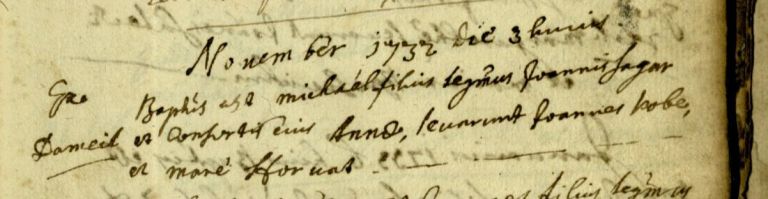 November 1732 die 3 huius
Ex Baptis est michaël filius legmus Joannis sagar
Dameil et Consortis eius Annæ, levarunt Joannes kobe,
et mare
filius legmus